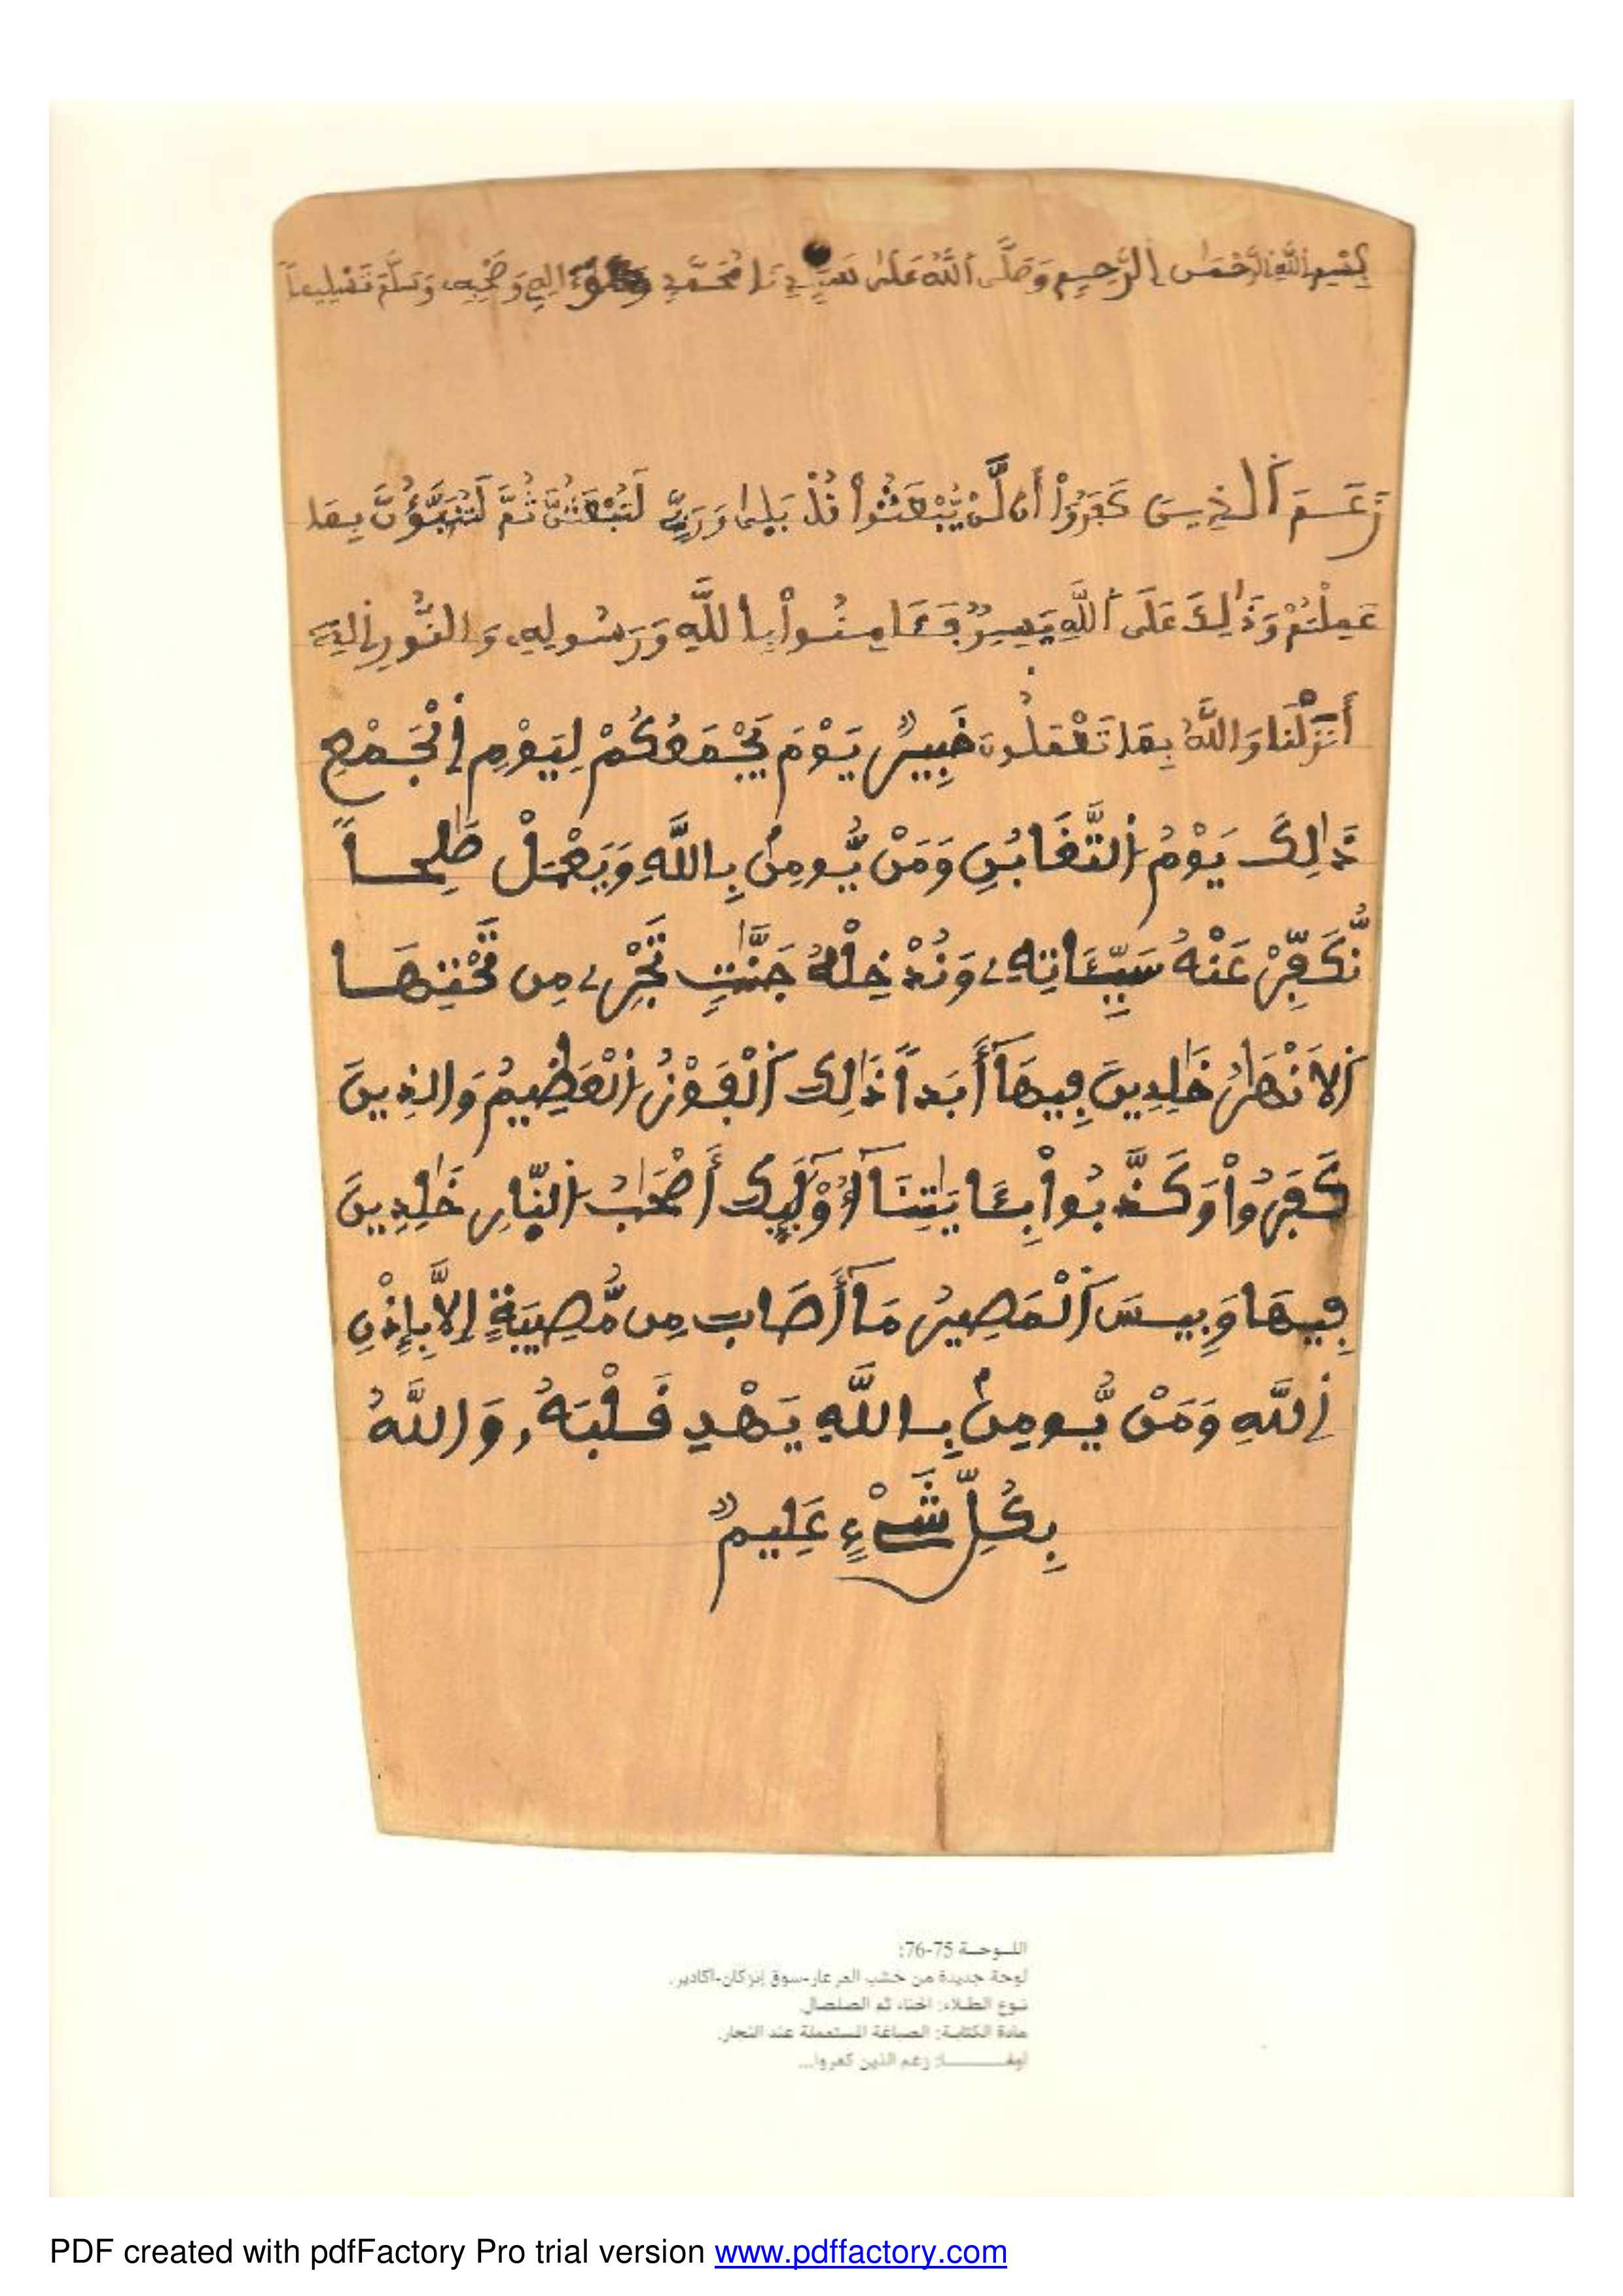 بِسْمِ اللَّهِ الرَّحْمَٰنِ الرَّحِيمِ وَصَلَّى اللَّهُ عَلَىٰ سَيِّدِنَا مُحَمَّدٍ ءَالِهِ وَصَحْبِهِ وَسَلَّمَ تَسْلِيماً
زَعَمَ الذِينَ كَفَرُواْ أَن لَّنْ يُّبْعَثُواْ قُلْ بَلَىٰ وَرَبِّي لَتُبْعَثُنَّ ثُمَّ لَتُنَبَّؤُنَّ بِمَا
عَمِلْتُمْ وَذَٰلِكَ عَلَى اللَّهِ يَسِيرٌ فَـَٔامِنُواْ بِاللَّهِ وَرَسُولِهِ وَالنُّورِ الذِي
أَنزَلْنَا وَاللَّهُ بِمَا تَعْمَلُونَ خَبِيرٌ يَوْمَ يَجْمَعُكُمْ لِيَوْمِ اِلْجَمْعِ
ذَٰلِكَ يَوْمُ التَّغَابُنِ وَمَنْ يُّومِنۢ بِاللَّهِ وَيَعْمَلْ صَٰلِحاً
نُّكَفِّرْ عَنْهُ سَيِّـَٔاتِهِۦ وَنُدْخِلْهُ جَنَّٰتٍ تَجْرِے مِن تَحْتِهَا
اَلَانْهَٰرُ خَٰلِدِينَ فِيهَآ أَبَداً ذَٰلِكَ اَلْفَوْزُ اُلْعَظِيمُ وَالذِينَ
كَفَرُواْ وَكَذَّبُواْ بِـَٔايَٰتِنَآ أُوْلَٰٓئِكَ أَصْحَٰبُ النّارِ خَٰلِدِينَ
فِيهَا وَبِيسَ اَلْمَصِيرُ مَآ أَصَابَ مِن مُّصِيبَةٍ إِلَّا بِإِذْنِ
اِللَّهِ وَمَنْ يُّومِنۢ بِاللَّهِ يَهْدِ قَلْبَهُۥ وَاللَّهُ
بِكُلِّ شَيْءٍ عَلِيمٌ
اللـوحـة 75-76:
لوحة جديدة من خشب العرعار-سوق إنزكان-اكادير.
نـوع الطـلاء: الحناء ثم الصلصال.
مادة الكتابـة: الصباغة المستعملة عند النجار.
زعم الذين كفروا...
PDF created with pdfFactory Pro trial version www.pdffactory.com